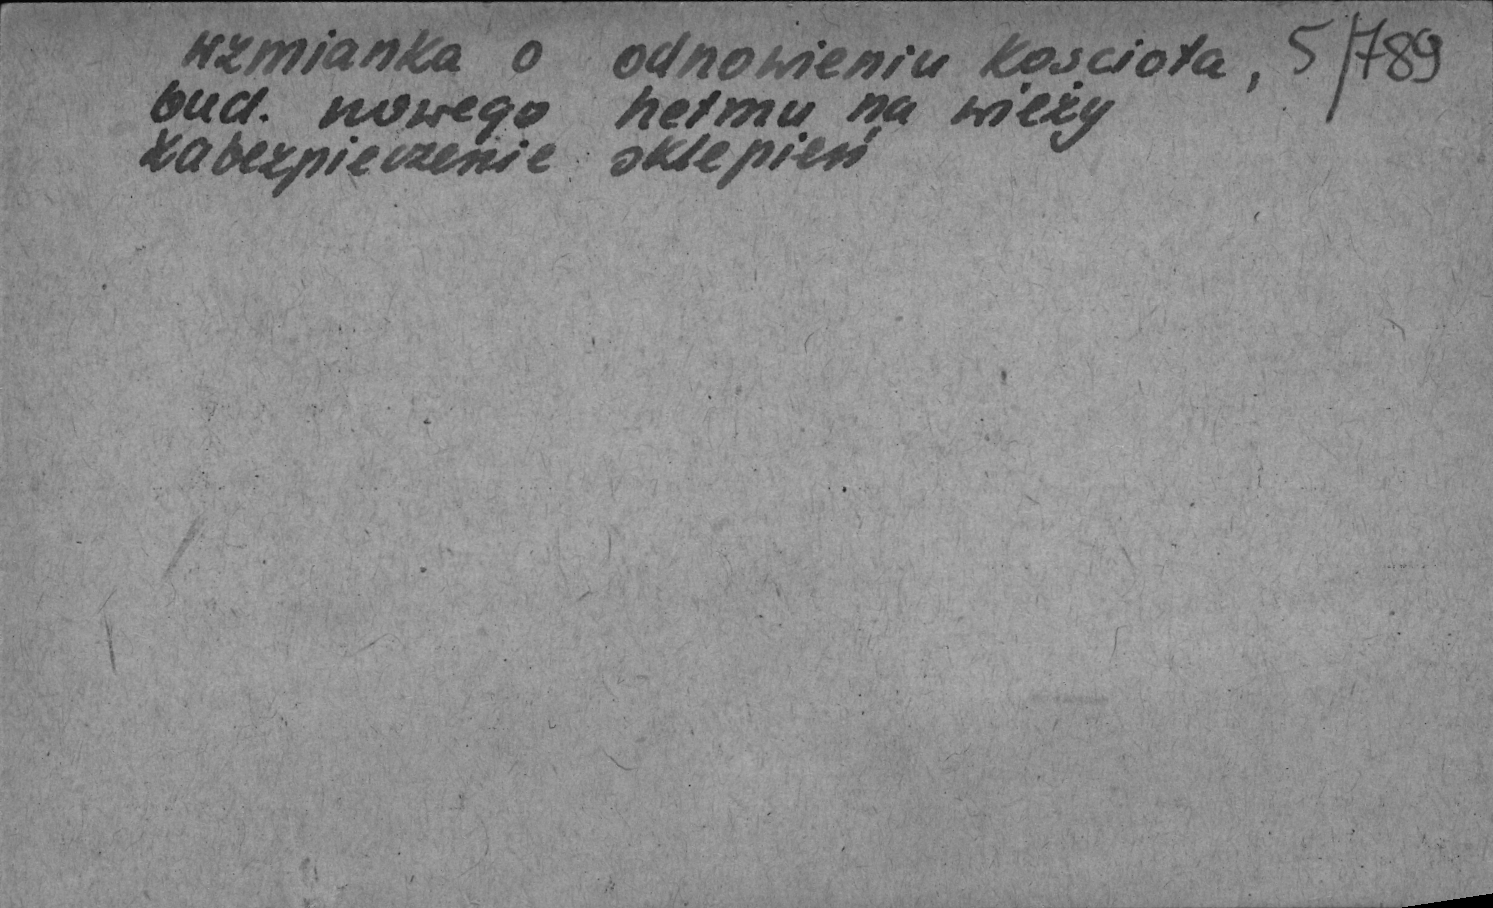 wzmianka o odnowieniu kościoła, 5/789
bud. nowego hełmu na wieży
zabezpieczenie sklepień